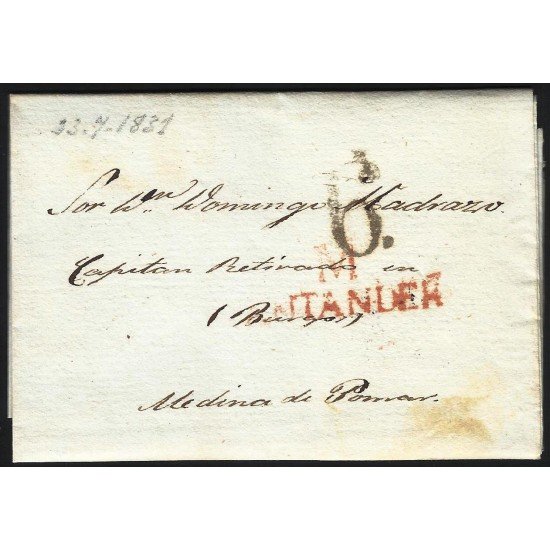 23.7.1831
6.
Sor Dn Domingo Madrazo
M
Capitan Retirado en
NTANDER
(Burgos)
Medina de Pomar.